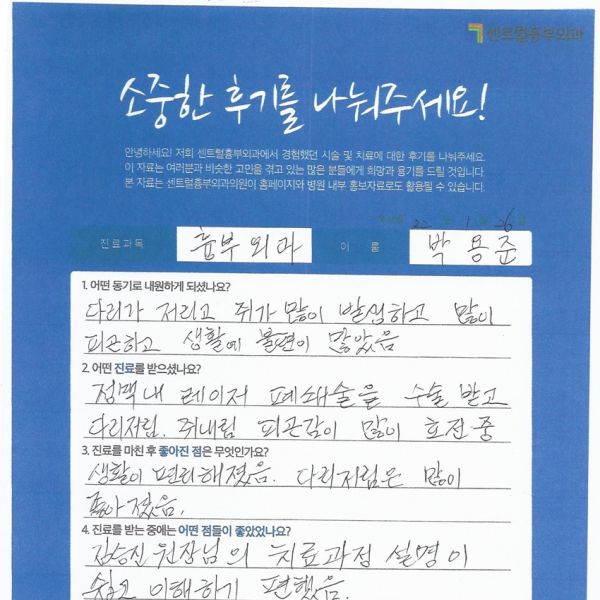 센트럴흉부외과
소중한 후기를 나눠주세요!
안녕하세요! 저희 센트럴흉부외과에서 경험했던 시술 및 치료에 대한 후기를 나눠주세요.
이 자료는 여러분과 비슷한 고민을 겪고 있는 많은 분들에게 희망과 용기를 드릴 것입니다.
본 자료는 센트럴흉부외과의원이 홈페이지와 병원 내부 홍보자료로도 활용될 수 있습니다.
22 년 1 월 26 일
진료과목 흉부외과 이 름 박용준
1. 어떤 동기로 내원하게 되셨나요?
다리가 저리고 쥐가 많이 발생하고 많이
피곤하고 생활에 불편이 많았음
2. 어떤 진료를 받으셨나요?
정맥내 레이저 폐쇄술을 수술 받고
다리저림. 쥐내림 피곤감이 많이 호전 중
3. 진료를 마친 후 좋아진 점은 무엇인가요?
생활이 편리해졌음. 다리저림은 많이
좋아졌음.
4. 진료를 받는 중에는 어떤 점들이 좋았었나요?
김승진 원장님의 치료과정 설명이
쉽고 이해하기 편했음.